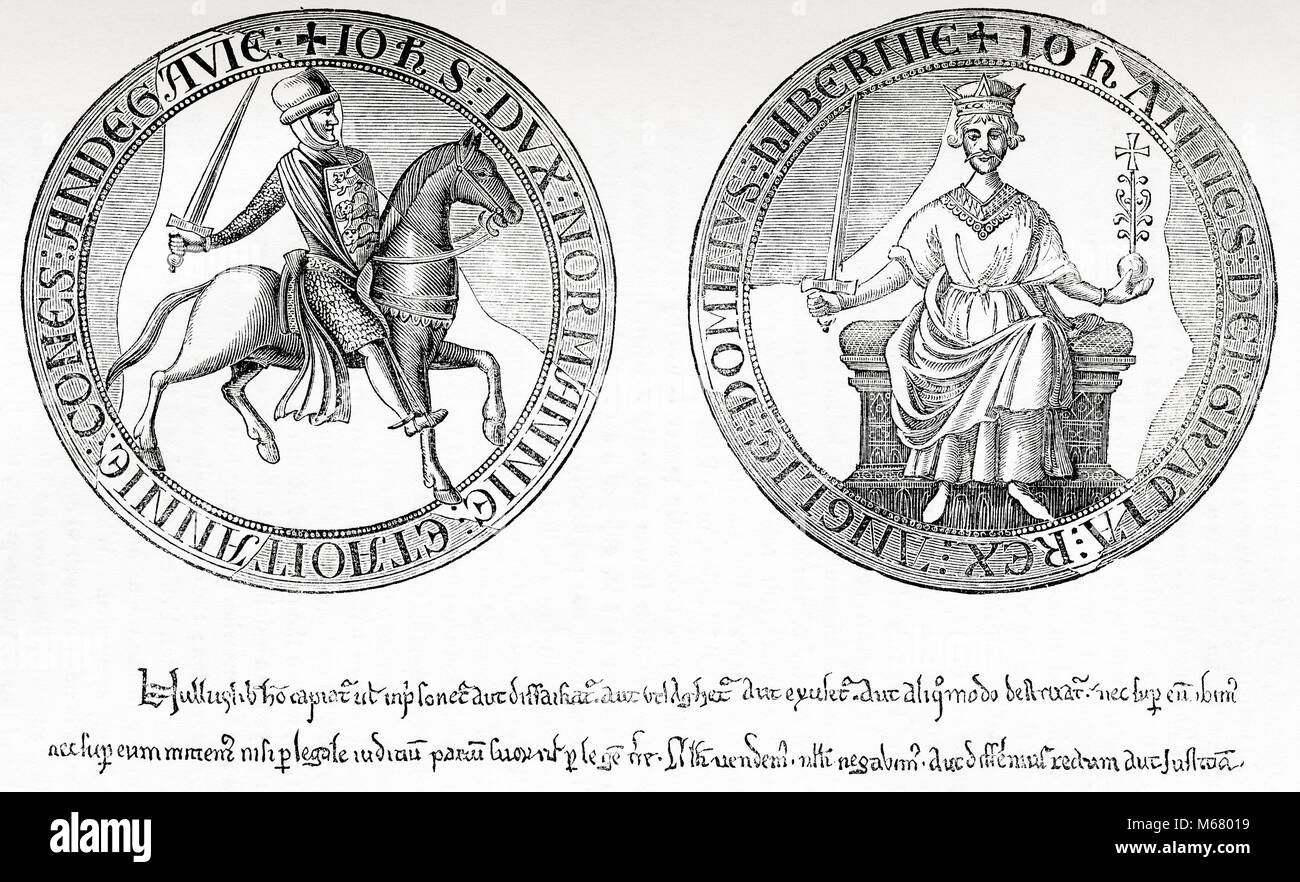 + IOHS : DUX : NORMANNIE : ET AQUITANNIE : COMES : ANDEGAVIE :
+ IOHANNES : DEI : GRATIA : REX : ANGLIE : DOMINUS : HIBERNIE
Nullus lib ho capiat ut inp'sonet aut dissaisiat aut utlaghet aut exulet aut aliq modo destruat nec sup eu ibim
nec sup eum mittem nisi p legale iudiciu pariu suor ut p lege tre. Nlli vendem . nlli negabim . aut differemus rectum aut justicia.
alamy
Image ID: M68019
www.alamy.com